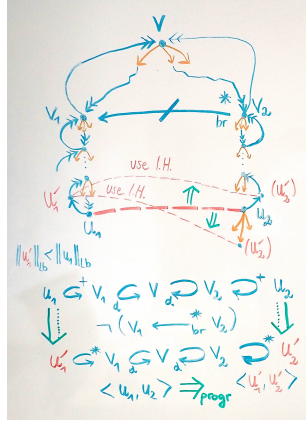 V
V₁ * br V₂
use I.H.
u₁′ use I.H. (u₂′)
u₁ u₂
(u₂′)
‖u₁′‖lb < ‖u₁‖lb
u₁ ↺⁺ V₁ d↺ V ↻d V₂ ↻⁺ u₂
¬ (V₁ ←*br V₂)
u₁′ ↺* V₁ d↺ V ↻d V₂ ↻* u₂′
< u₁, u₂ > ⇒progr < u₁′, u₂′ >